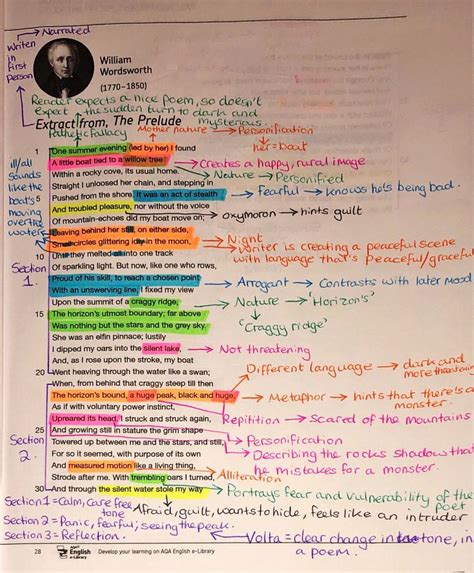 Narrated
Writen
in
first
person
William
Wordsworth
(1770–1850)
Reader expects a nice poem, so doesn't
expect the sudden turn to dark and
mysterious.
Extract from, The Prelude
Pathetic fallacy
Mother nature → Personification
her = boat
1 One summer evening (led by her) I found
A little boat tied to a willow tree
Creates a happy, rural image
Within a rocky cove, its usual home.
Nature → Personified
Straight I unloosed her chain, and stepping in
5 Pushed from the shore. It was an act of stealth
Fearful → Knows he's being bad.
And troubled pleasure, nor without the voice
oxymoron → hints guilt
Of mountain-echoes did my boat move on;
ill/all
sounds
like the
boat's
moving
over the
water
Leaving behind her still, on either side,
Small circles glittering idly in the moon,
Night
Writer is creating a peaceful scene
with language that's peaceful/graceful
10 Until they melted all into one track
Of sparkling light. But now, like one who rows,
Section
1.
Proud of his skill, to reach a chosen point
Arrogant → Contrasts with later mood
With an unswerving line, I fixed my view
Upon the summit of a craggy ridge,
Nature → 'Horizon's'
'Craggy ridge'
15 The horizon's utmost boundary; far above
Was nothing but the stars and the grey sky.
She was an elfin pinnace; lustily
I dipped my oars into the silent lake,
Not threatening
And, as I rose upon the stroke, my boat
20 Went heaving through the water like a swan;
Different language → dark and
more threatening
When, from behind that craggy steep till then
The horizon's bound, a huge peak, black and huge,
Metaphor → hints that there's a
monster.
As if with voluntary power instinct,
Upreared its head. I struck and struck again,
Repitition → Scared of the mountains
25 And growing still in stature the grim shape
Personification
Section
2.
Towered up between me and the stars, and still,
Describing the rocks shadow that
he mistakes for a monster.
For so it seemed, with purpose of its own
And measured motion like a living thing,
Strode after me. With trembling oars I turned,
Alliteration
30 And through the silent water stole my way
Portrays fear and vulnerability of the
poet
Section 1 = Calm, Care free
tone
Afraid, guilt, wants to hide, feels like an intruder
Section 2 = Panic, fearful; seeing the peak.
Section 3 = Reflection.
Volta = clear change in tone, in
a poem.
28
AQA
English
e-Library
Develop your learning on AQA English e-Library